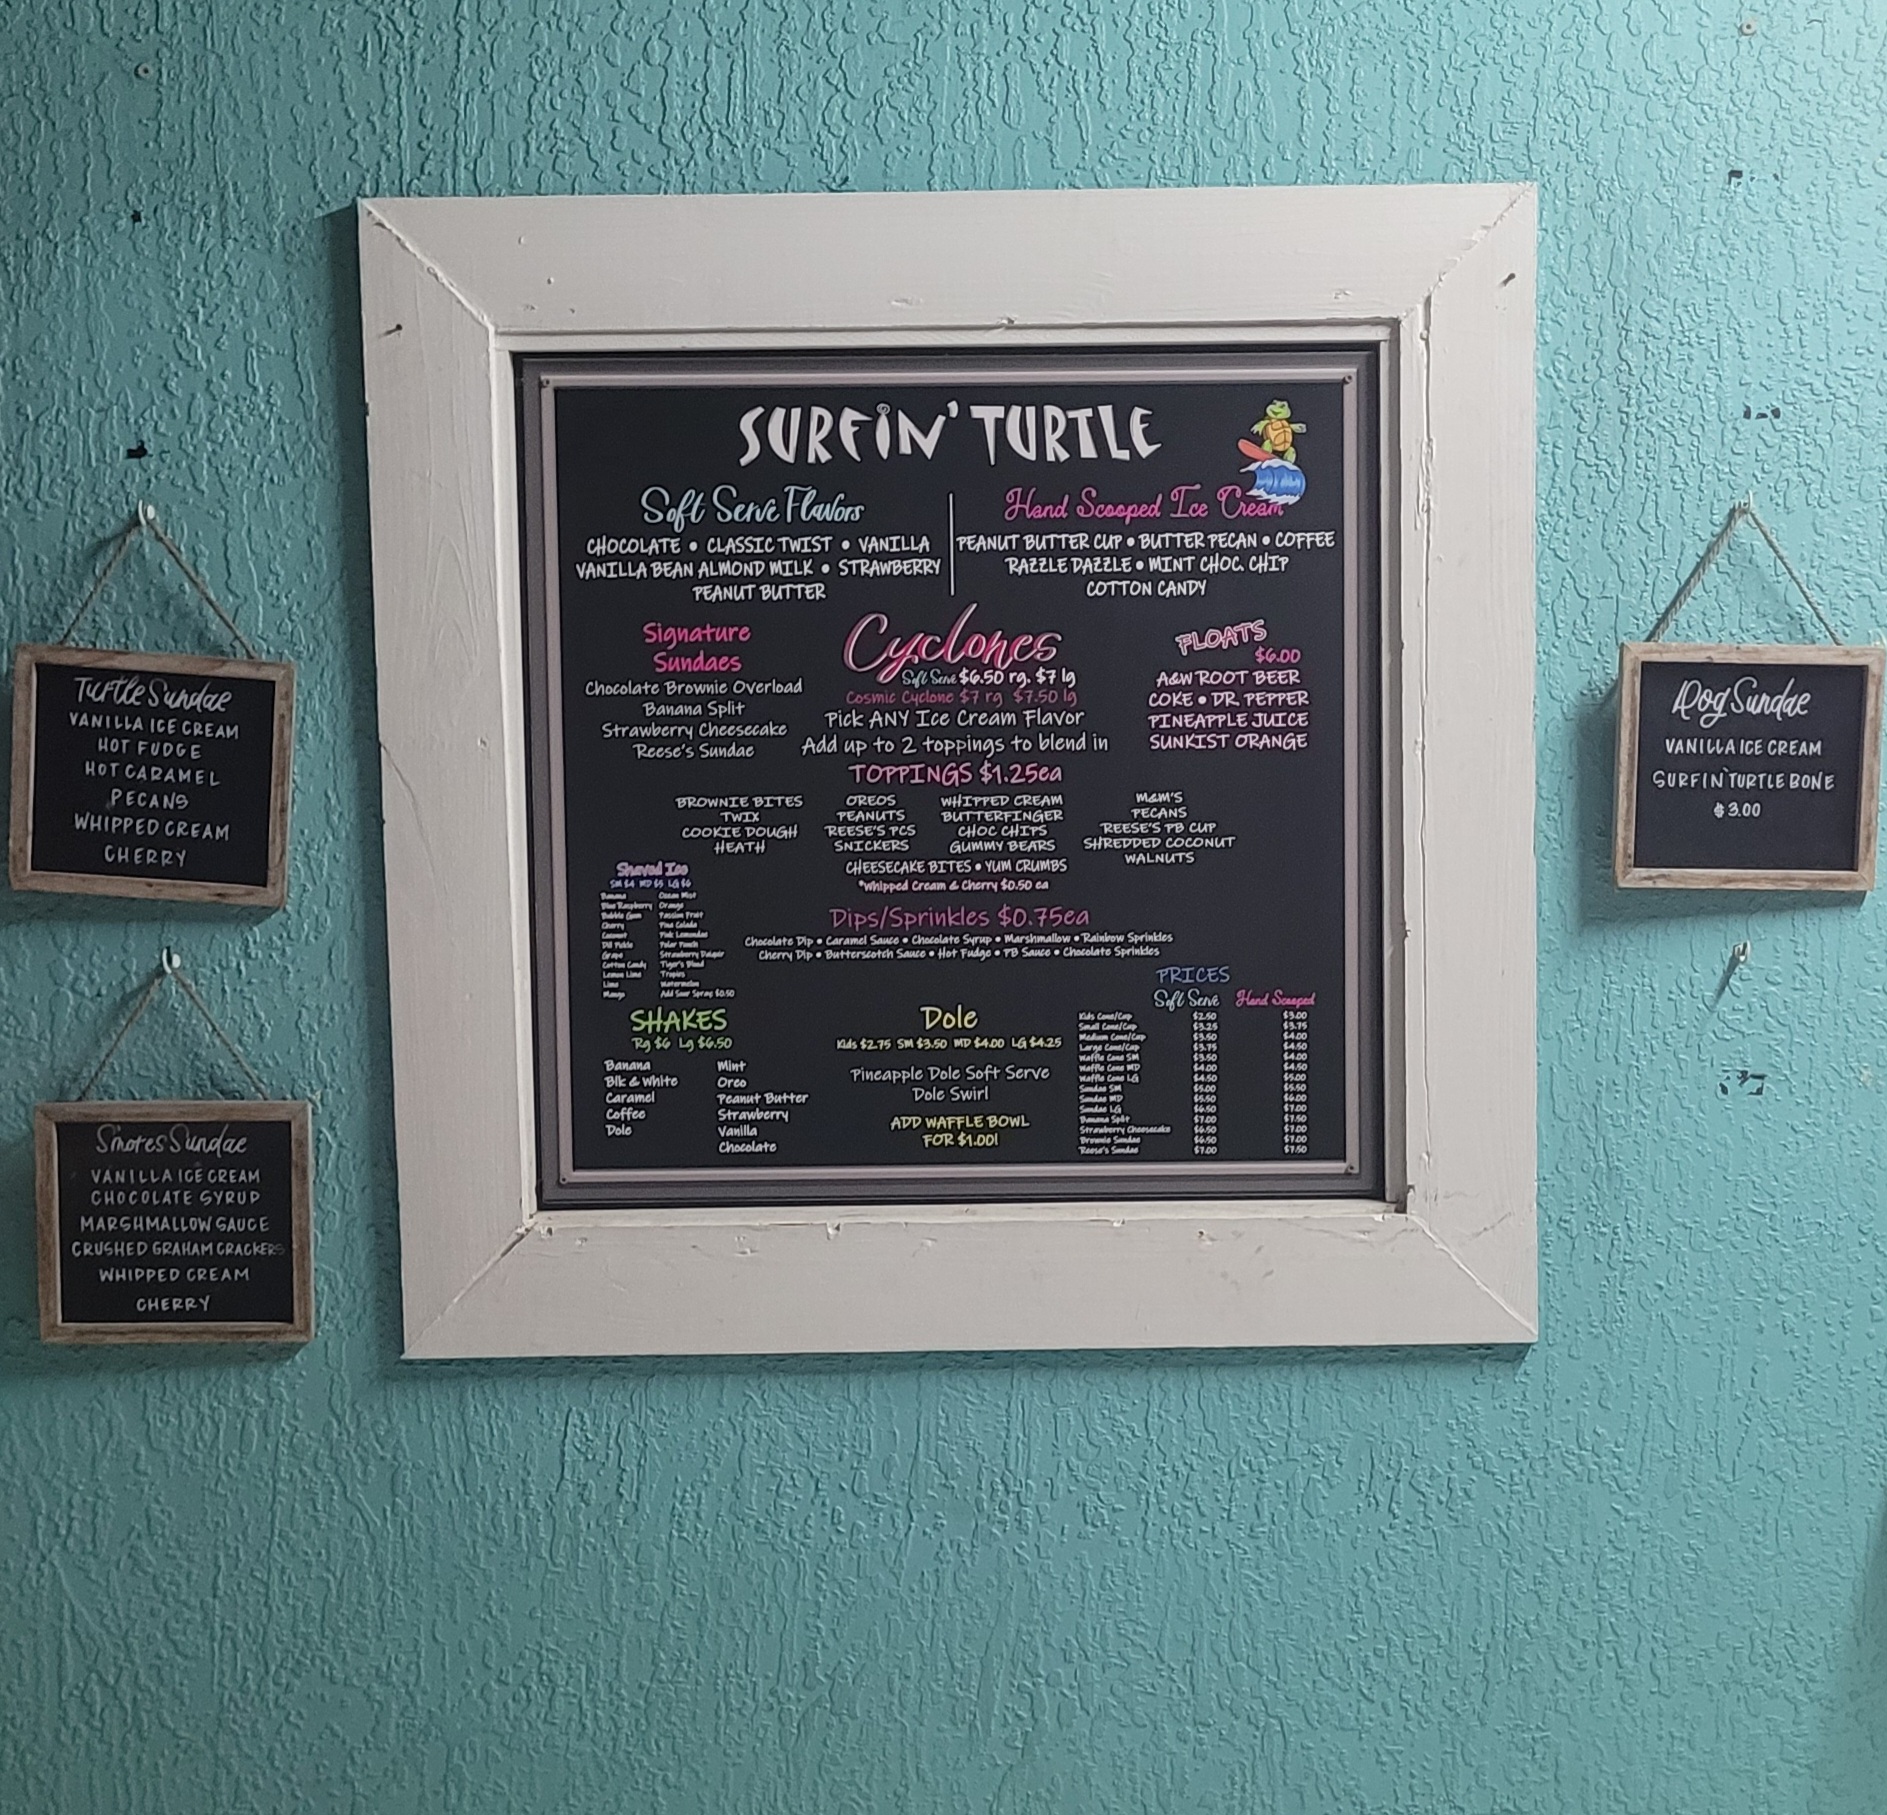 SURFIN' TURTLE
Soft Serve Flavors
CHOCOLATE • CLASSIC TWIST • VANILLA
VANILLA BEAN ALMOND MILK • STRAWBERRY
PEANUT BUTTER
Hand Scooped Ice Cream
PEANUT BUTTER CUP • BUTTER PECAN • COFFEE
RAZZLE DAZZLE • MINT CHOC. CHIP
COTTON CANDY
Signature
Sundaes
Chocolate Brownie Overload
Banana Split
Strawberry Cheesecake
Reese's Sundae
Cyclones
Soft Serve $6.50 rg. $7 lg
Cosmic Cyclone $7 rg $7.50 lg
Pick ANY Ice Cream Flavor
Add up to 2 toppings to blend in
FLOATS
$6.00
A&W ROOT BEER
COKE • DR. PEPPER
PINEAPPLE JUICE
SUNKIST ORANGE
TOPPINGS $1.25ea
BROWNIE BITES
TWIX
COOKIE DOUGH
HEATH
OREOS
PEANUTS
REESE'S PCS
SNICKERS
WHIPPED CREAM
BUTTERFINGER
CHOC CHIPS
GUMMY BEARS
M&M'S
PECANS
REESE'S PB CUP
SHREDDED COCONUT
WALNUTS
CHEESECAKE BITES • YUM CRUMBS
*Whipped Cream & Cherry $0.50 ea
Shaved Ice
SM $4 MD $5 LG $6
Banana
Blue Raspberry
Bubble Gum
Cherry
Coconut
Dill Pickle
Grape
Cotton Candy
Lemon Lime
Lime
Mango
Ocean Mist
Orange
Passion Fruit
Pina Colada
Pink Lemonade
Polar Punch
Strawberry Daiquiri
Tiger's Blood
Tropics
Watermelon
Add Sour Spray $0.50
Dips/Sprinkles $0.75ea
Chocolate Dip • Caramel Sauce • Chocolate Syrup • Marshmallow • Rainbow Sprinkles
Cherry Dip • Butterscotch Sauce • Hot Fudge • PB Sauce • Chocolate Sprinkles
SHAKES
Rg $6 Lg $6.50
Banana
Blk & White
Caramel
Coffee
Dole
Mint
Oreo
Peanut Butter
Strawberry
Vanilla
Chocolate
Dole
Kids $2.75 SM $3.50 MD $4.00 LG $4.25
Pineapple Dole Soft Serve
Dole Swirl
ADD WAFFLE BOWL
FOR $1.00!
PRICES
Soft Serve Hand Scooped
Kids Cone/Cup $2.50 $3.00
Small Cone/Cup $3.25 $3.75
Medium Cone/Cup $3.50 $4.00
Large Cone/Cup $3.75 $4.50
Waffle Cone SM $3.50 $4.00
Waffle Cone MD $4.00 $4.50
Waffle Cone LG $4.50 $5.00
Sundae SM $5.00 $5.50
Sundae MD $5.50 $6.00
Sundae LG $6.50 $7.00
Banana Split $7.00 $7.50
Strawberry Cheesecake $6.50 $7.00
Brownie Sundae $6.50 $7.00
Reese's Sundae $7.00 $7.50
Turtle Sundae
VANILLA ICE CREAM
HOT FUDGE
HOT CARAMEL
PECANS
WHIPPED CREAM
CHERRY
S'mores Sundae
VANILLA ICE CREAM
CHOCOLATE SYRUP
MARSHMALLOW SAUCE
CRUSHED GRAHAM CRACKERS
WHIPPED CREAM
CHERRY
Dog Sundae
VANILLA ICE CREAM
SURFIN' TURTLE BONE
$3.00